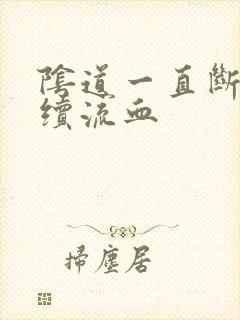 陰道一直斷
續流血
掃塵居